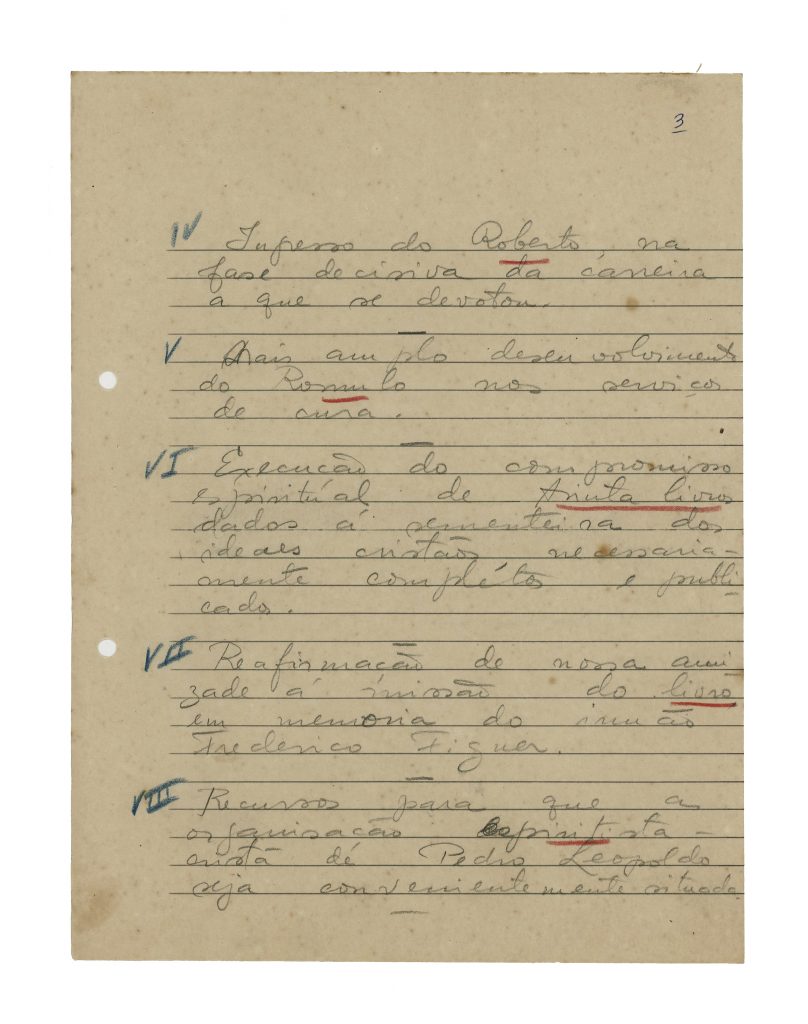 3
IV Ingresso do Roberto, na
fase decisiva da carreira
a que se devotou.
V Mais amplo desenvolvimento
do Romulo nos serviços
de cura.
VI Execução do compromisso
espirituál de trinta livros
dados á sementeira dos
ideaes cristãos necessaria-
mente complétos e publi-
cados.
VII Reafirmação de nossa ami
zade á missão do livro
em memoria do irmão
Frederico Figner.
VIII Recursos para que a
organisação espiritista-
cristã de Pedro Leopoldo
seja convenientemente situada